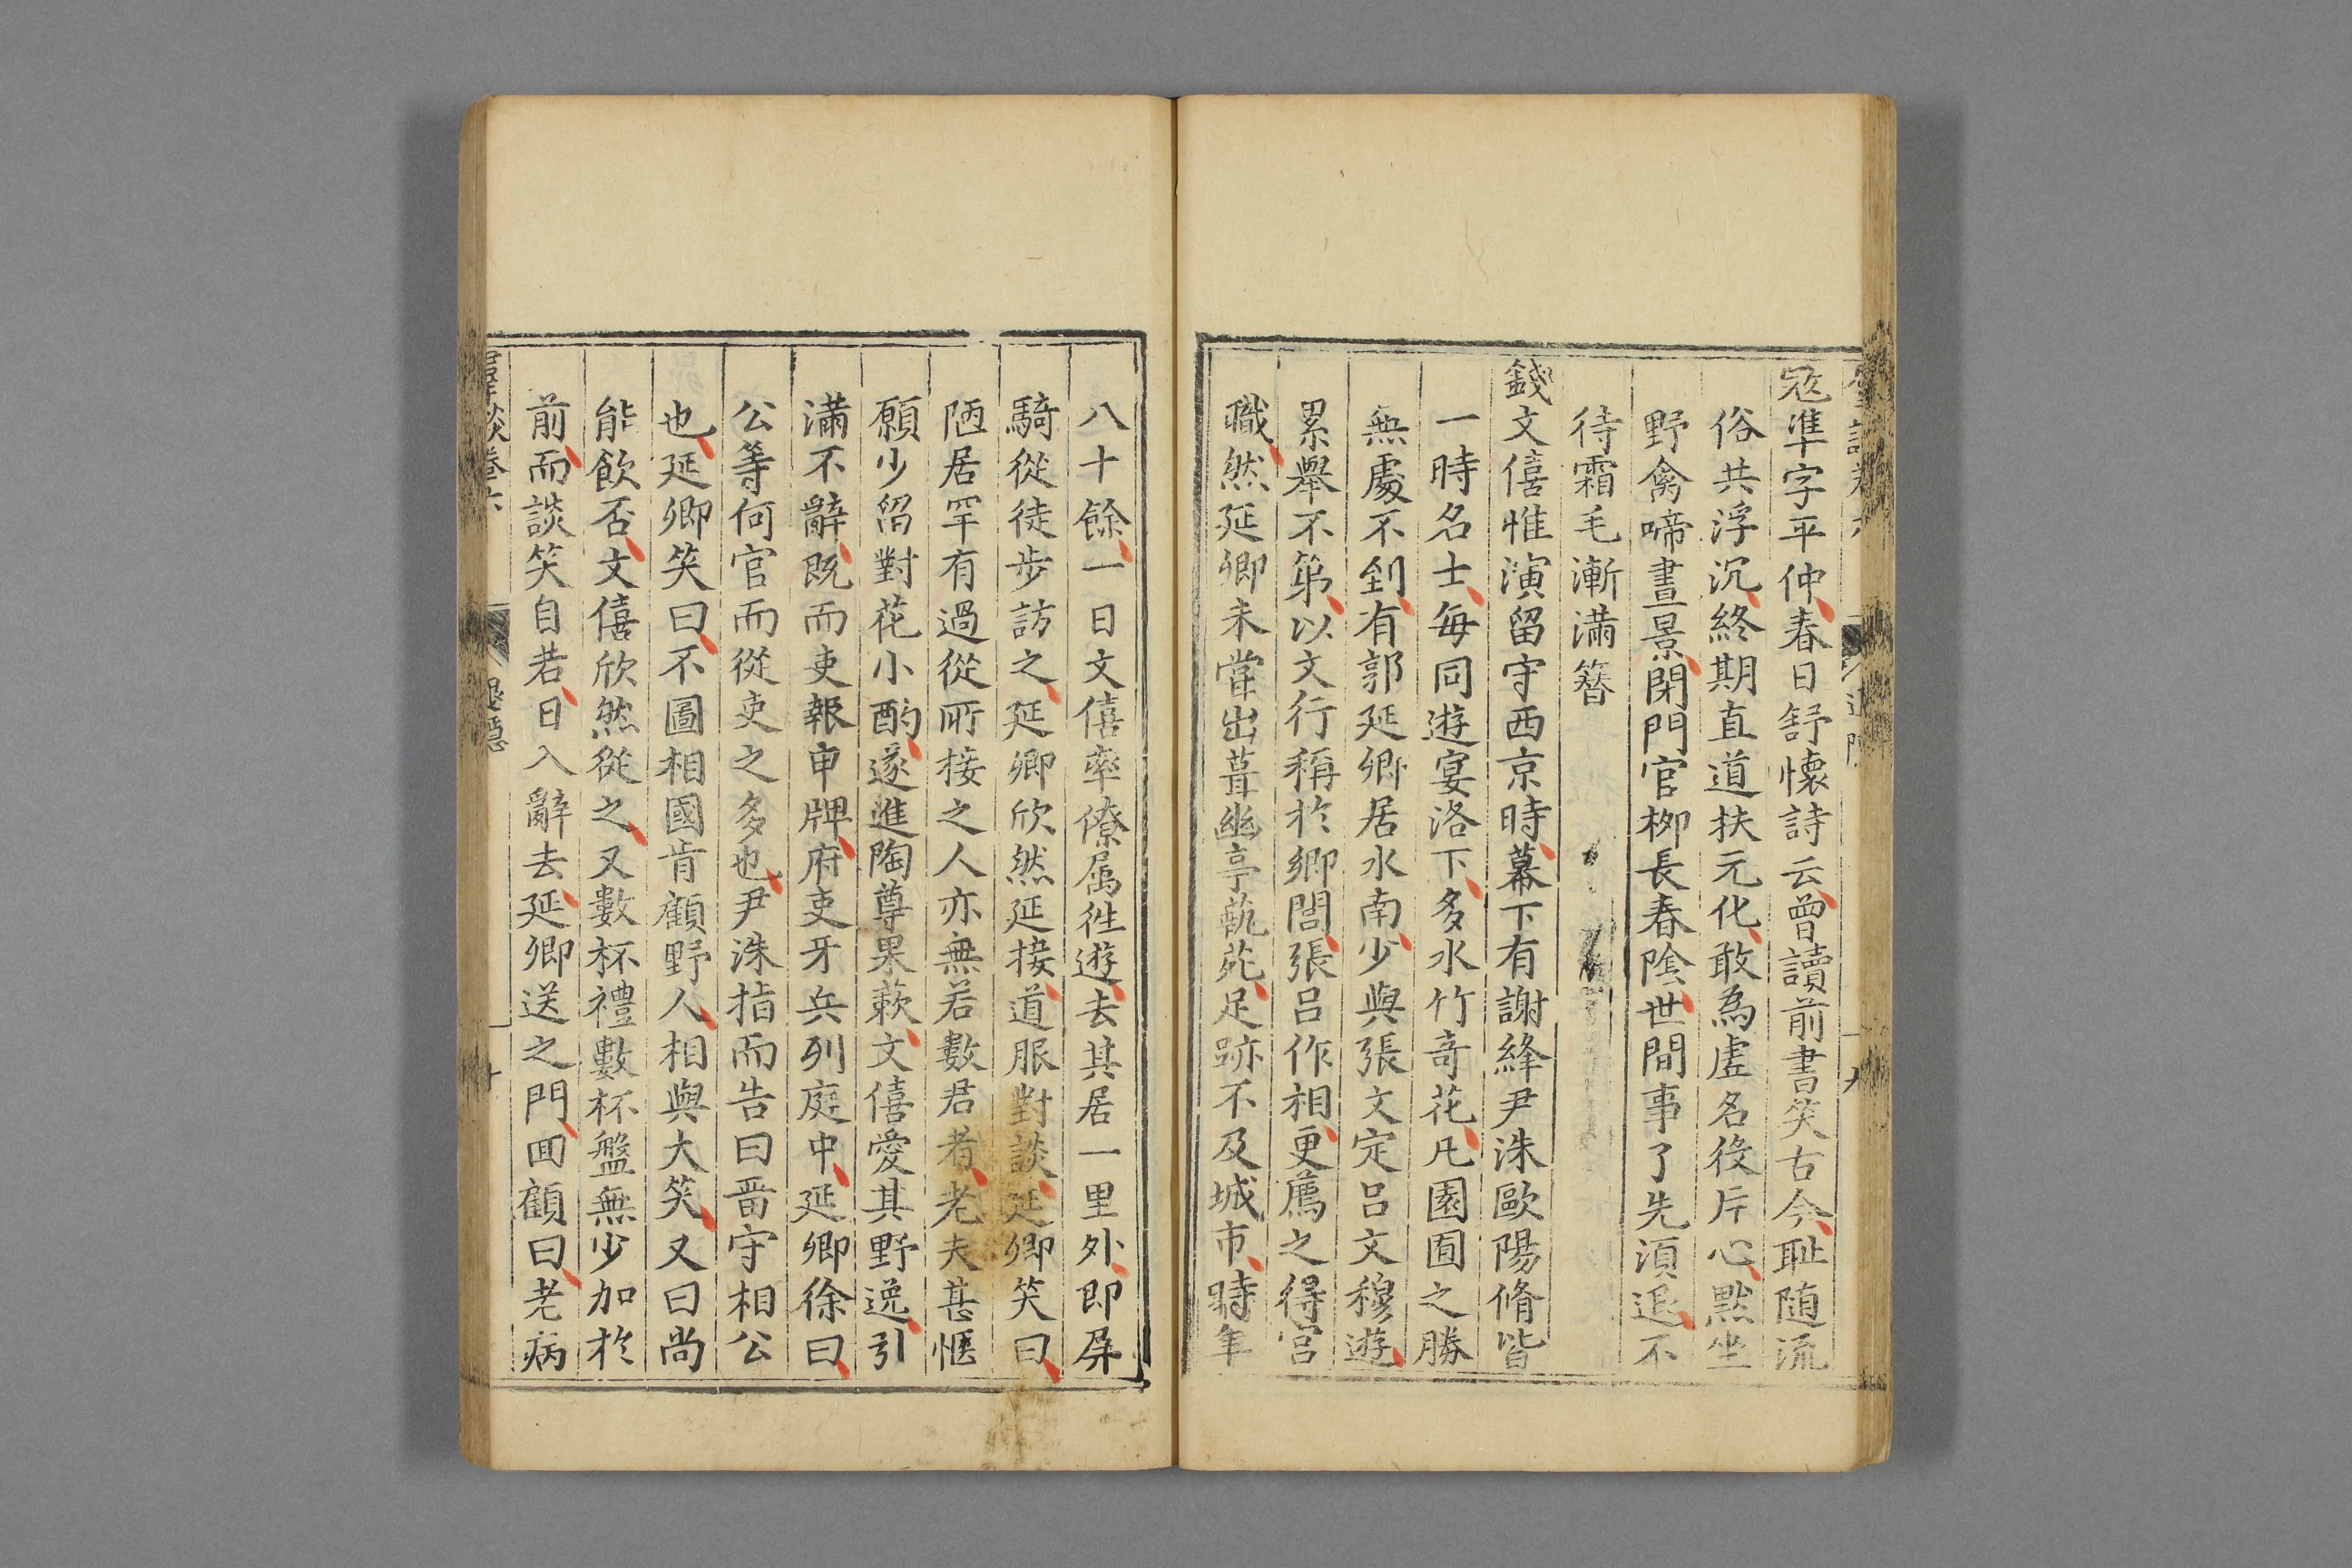 寇準字平仲春日舒懷詩云曾讀前書笑古今耻随流
俗共浮沉終期直道扶元化敢為虛名役片心黙坐
野禽啼晝景閉門官栁長春陰世間事了先湏退不
待霜毛漸滿簪
錢文僖惟演留守西京時幕下有謝絳尹洙歐陽脩皆
一時名士每同遊宴洛下多水竹竒花凡園囿之勝
無處不到有郭延卿居水南少與張文定呂文穆遊
累舉不第以文行稱於鄉閭張呂作相更薦之得官
職然延卿未甞出葺幽亭蓺苑足跡不及城市時年
八十餘一日文僖率僚属徃遊去其居一里外即屏
騎從徒步訪之延卿欣然延接道服對談延卿笑曰
陋居罕有過從所接之人亦無若數君者老夫甚愜
願少留對花小酌遂進陶尊果蔌文僖愛其野逸引
滿不辭既而吏報申牌府吏牙兵列庭中延卿徐曰
公等何官而從吏之多也尹洙指而告曰畱守相公
也延卿笑曰不圖相國肯顧野人相與大笑又曰尚
能飲否文僖欣然從之又數杯禮數杯盤無少加於
前而談笑自若日入辭去延卿送之門囬顧曰老病
羣談卷六 退隱 十